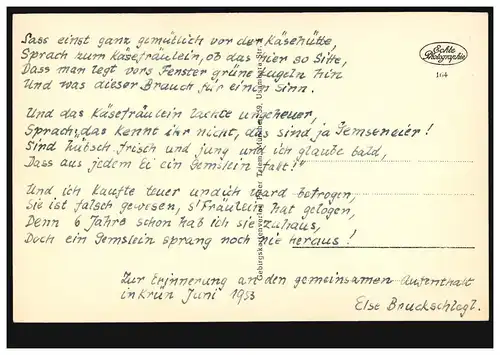 Sass einst ganz gemütlich vor der Käsehütte,
Sprach zum Käsefräulein, ob das hier so Sitte,
Dass man legt vors Fenster grüne Kugeln hin
Und was dieser Brauch für einen Sinn.
Und das Käsefräulein lachte ungeheuer,
Sprach: das kennt ihr nicht, das sind ja Gemseneier!
Sind hübsch frisch und jung und ich glaube bald,
Dass aus jedem Ei ein Gemslein fallt!"
Und ich kaufte teuer und ich ward betrogen,
Sie ist falsch gewesen, s'Fräulein hat gelogen,
Denn 6 Jahre schon hab ich sie zuhaus,
Doch ein Gemslein sprang noch nie heraus!
Zur Erinnerung an den gemeinsamen Aufenthalt
in Krün Juni 1953
Else Bruckschlegl.
Echte
Photographie
164
Gebirgskartenverlag Peter München 59,